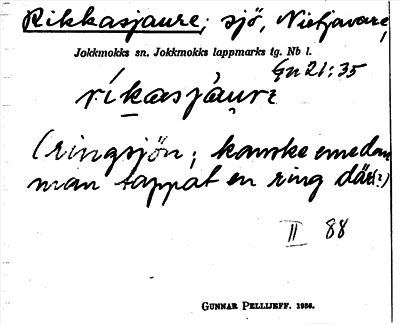 Rikkasjaure, sjö, Nietjavare,
Jokkmokks sn. Jokkmokks lappmarks tg. Nb l.
Gn 21:35
ríkasjàurε
(ringsjön; kanske emedan
man tappat en ring där(?)
II 88
GUNNAR PELLIJEFF. 1956.